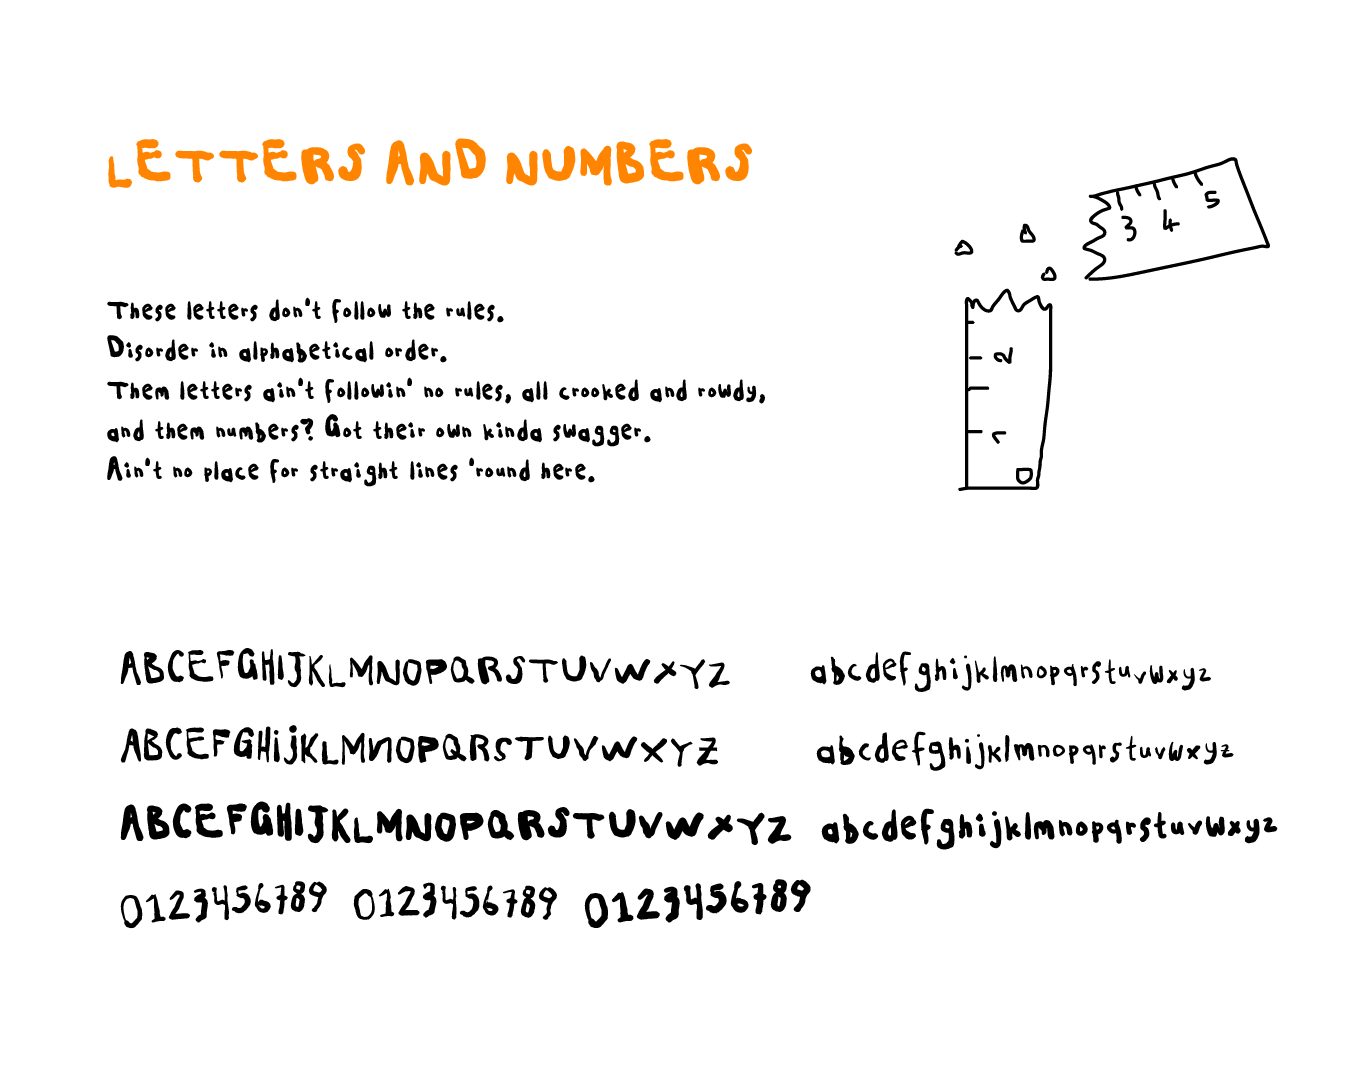 LETTERS AND NUMBERS
3 4 5
2
1
0
These letters don't follow the rules.
Disorder in alphabetical order.
Them letters ain't followin' no rules, all crooked and rowdy,
and them numbers? Got their own kinda swagger.
Ain't no place for straight lines 'round here.
ABCEFGHIJKLMNOPQRSTUVWXYZ abcdefghijklmnopqrstuvwxyz
ABCEFGHIJKLMNOPQRSTUVWXYZ abcdefghijklmnopqrstuvwxyz
ABCEFGHIJKLMNOPQRSTUVWXYZ abcdefghijklmnopqrstuvwxyz
0123456789 0123456789 0123456789